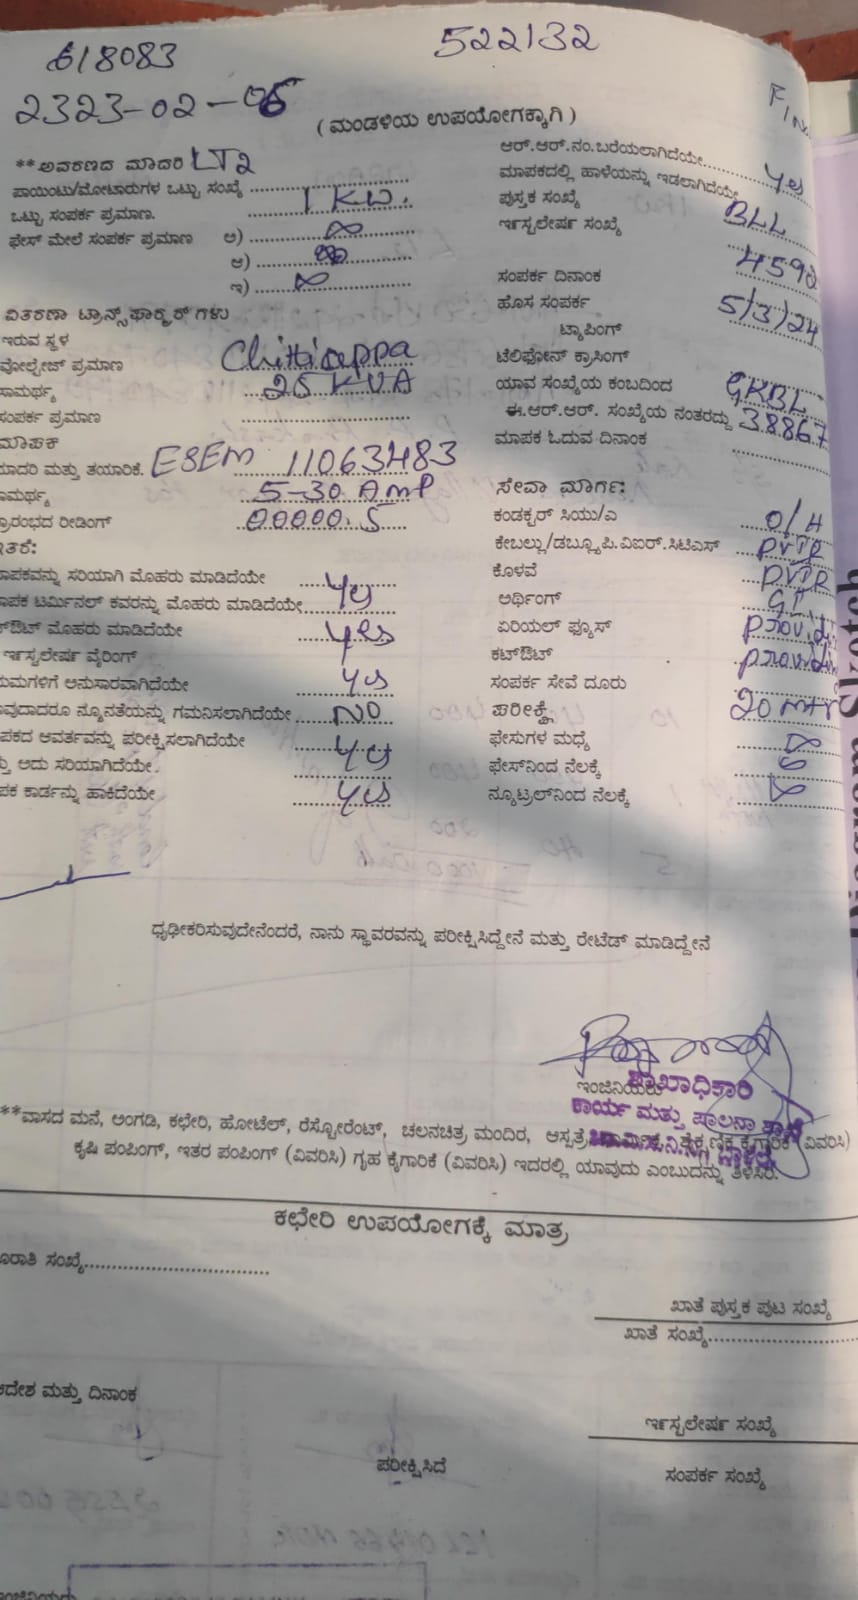 618083
522132
2323-02-06
( ಮಂಡಳಿಯ ಉಪಯೋಗಕ್ಕಾಗಿ )
**ಅವರಣದ ಮಾದರಿ LT2
ಪಾಯಿಂಟು/ಮೋಟಾರುಗಳ ಒಟ್ಟು ಸಂಖ್ಯೆ
ಒಟ್ಟು ಸಂಪರ್ಕ ಪ್ರಮಾಣ. 1 KW.
ಫೇಸ್ ಮೇಲೆ ಸಂಪರ್ಕ ಪ್ರಮಾಣ ಅ)
ಆ)
ಇ)
ವಿತರಣಾ ಟ್ರಾನ್ಸ್‌ಫಾರ್ಮರ್ ಗಳು
ಇರುವ ಸ್ಥಳ Chitticeppa
ವೋಲ್ಟೇಜ್ ಪ್ರಮಾಣ
ಸಾಮರ್ಥ್ಯ 25 KVA
ಸಂಪರ್ಕ ಪ್ರಮಾಣ
ಮಾಪಕ
ಮಾದರಿ ಮತ್ತು ತಯಾರಿಕೆ. ESEM 11063483
ಸಾಮರ್ಥ್ಯ 5-30 Amp
ಪ್ರಾರಂಭದ ರೀಡಿಂಗ್ 00000.5
ಇತರೆ:
ಮಾಪಕವನ್ನು ಸರಿಯಾಗಿ ಮೊಹರು ಮಾಡಿದೆಯೇ yes
ಮಾಪಕ ಟರ್ಮಿನಲ್ ಕವರನ್ನು ಮೊಹರು ಮಾಡಿದೆಯೇ
ಕಟ್‌ಔಟ್ ಮೊಹರು ಮಾಡಿದೆಯೇ yes
ಇನ್‌ಸ್ಟಲೇಷನ್ ವೈರಿಂಗ್
ನಿಯಮಗಳಿಗೆ ಅನುಸಾರವಾಗಿದೆಯೇ yes
ಯಾವುದಾದರೂ ನ್ಯೂನತೆಯನ್ನು ಗಮನಿಸಲಾಗಿದೆಯೇ NO
ಮಾಪಕದ ಆವರ್ತವನ್ನು ಪರೀಕ್ಷಿಸಲಾಗಿದೆಯೇ yes
ಮತ್ತು ಅದು ಸರಿಯಾಗಿದೆಯೇ
ಮಾಪಕ ಕಾರ್ಡನ್ನು ಹಾಕಿದೆಯೇ yes
ಆರ್.ಆರ್.ನಂ.ಬರೆಯಲಾಗಿದೆಯೇ
ಮಾಪಕದಲ್ಲಿ ಹಾಳೆಯನ್ನು ಇಡಲಾಗಿದೆಯೇ yes
ಪುಸ್ತಕ ಸಂಖ್ಯೆ
ಇನ್‌ಸ್ಟಲೇಷನ್ ಸಂಖ್ಯೆ BLL
4592
ಸಂಪರ್ಕ ದಿನಾಂಕ 5/3/24
ಹೊಸ ಸಂಪರ್ಕ
ಟ್ಯಾಪಿಂಗ್
ಟೆಲಿಫೋನ್ ಕ್ರಾಸಿಂಗ್
ಯಾವ ಸಂಖ್ಯೆಯ ಕಂಬದಿಂದ GKBL
ಈ.ಆರ್.ಆರ್. ಸಂಖ್ಯೆಯ ನಂತರದ್ದು 38867
ಮಾಪಕ ಓದುವ ದಿನಾಂಕ
ಸೇವಾ ಮಾರ್ಗ:
ಕಂಡಕ್ಟರ್ ಸಿಯು/ಎ O/H
ಕೇಬಲ್ಲು/ಡಬ್ಲ್ಯೂ.ಪಿ.ವಿಐರ್.ಸಿಟಿಎಸ್
ಕೊಳವೆ
ಅರ್ಥಿಂಗ್ GI
ಏರಿಯಲ್ ಫ್ಯೂಸ್
ಕಟ್‌ಔಟ್
ಸಂಪರ್ಕ ಸೇವೆ ದೂರು 20 mtr
ಪರೀಕ್ಷೆ
ಫೇಸುಗಳ ಮಧ್ಯೆ
ಫೇಸ್‌ನಿಂದ ನೆಲಕ್ಕೆ
ನ್ಯೂಟ್ರಲ್‌ನಿಂದ ನೆಲಕ್ಕೆ
ಧೃಢೀಕರಿಸುವುದೇನೆಂದರೆ, ನಾನು ಸ್ಥಾವರವನ್ನು ಪರೀಕ್ಷಿಸಿದ್ದೇನೆ ಮತ್ತು ರೇಟೆಡ್ ಮಾಡಿದ್ದೇನೆ
ಇಂಜಿನಿಯರು
ಶಾಖಾಧಿಕಾರಿ
ಕಾರ್ಯ ಮತ್ತು ಪಾಲನಾ ಶಾಖೆ
**ವಾಸದ ಮನೆ, ಅಂಗಡಿ, ಕಛೇರಿ, ಹೋಟೆಲ್, ರೆಸ್ಟೋರೆಂಟ್, ಚಲನಚಿತ್ರ ಮಂದಿರ, ಆಸ್ಪತ್ರೆ ಶೈಕ್ಷಣಿಕ ಕೈಗಾರಿಕೆ (ವಿವರಿಸಿ)
ಕೃಷಿ ಪಂಪಿಂಗ್, ಇತರ ಪಂಪಿಂಗ್ (ವಿವರಿಸಿ) ಗೃಹ ಕೈಗಾರಿಕೆ (ವಿವರಿಸಿ) ಇದರಲ್ಲಿ ಯಾವುದು ಎಂಬುದನ್ನು ತಿಳಿಸಿರಿ.
ಕಛೇರಿ ಉಪಯೋಗಕ್ಕೆ ಮಾತ್ರ
ಸಂಖ್ಯೆ
ಖಾತೆ ಪುಸ್ತಕ ಪುಟ ಸಂಖ್ಯೆ
ಖಾತೆ ಸಂಖ್ಯೆ
ಆದೇಶ ಮತ್ತು ದಿನಾಂಕ
ಇನ್‌ಸ್ಟಲೇಷನ್ ಸಂಖ್ಯೆ
ಪರೀಕ್ಷಿಸಿದೆ
ಸಂಪರ್ಕ ಸಂಖ್ಯೆ